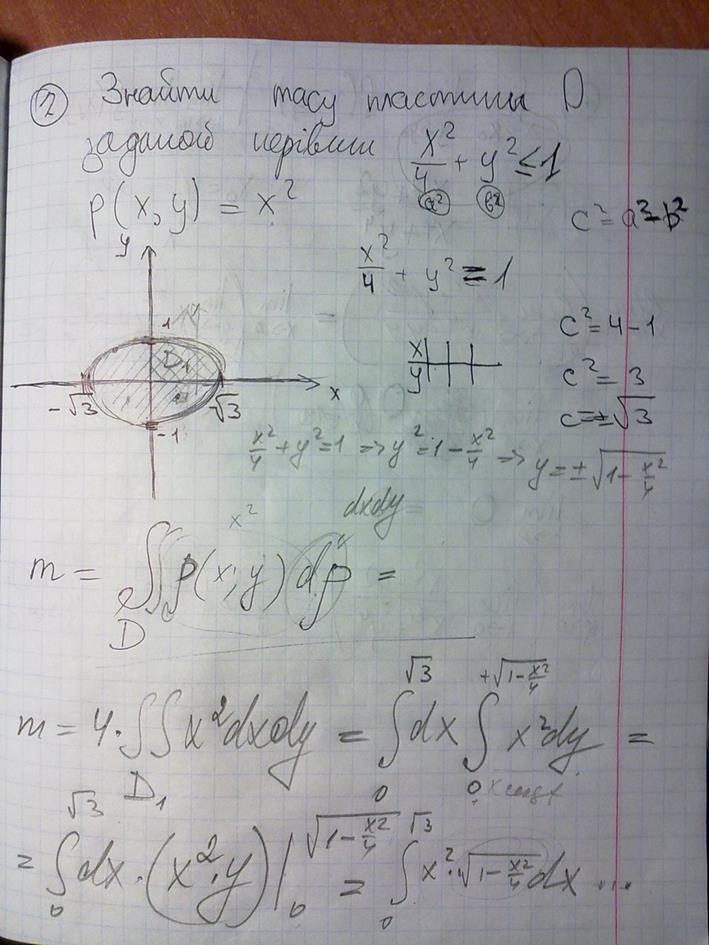 ② Знайти масу пластины D
заданой нерівши x²/4 + y² ≤ 1
a² b²
p(x, y) = x²
c² = a² - b²
x²/4 + y² = 1
c² = 4 - 1
x
y
c² = 3
c = ±√3
y
1
D₁
-√3 √3 x
-1
x²/4 + y² = 1 => y² = 1 - x²/4 => y = ±√(1 - x²/4)
x² dxdy
m = ∬ p(x; y) dp =
D
m = 4 · ∬_D₁ x² dxdy = ∫₀^√3 dx ∫₀^(+√(1 - x²/4)) x² dy =
= ∫₀^√3 dx · (x² · y) |₀^√(1 - x²/4) = ∫₀^√3 x² · √(1 - x²/4) dx ...